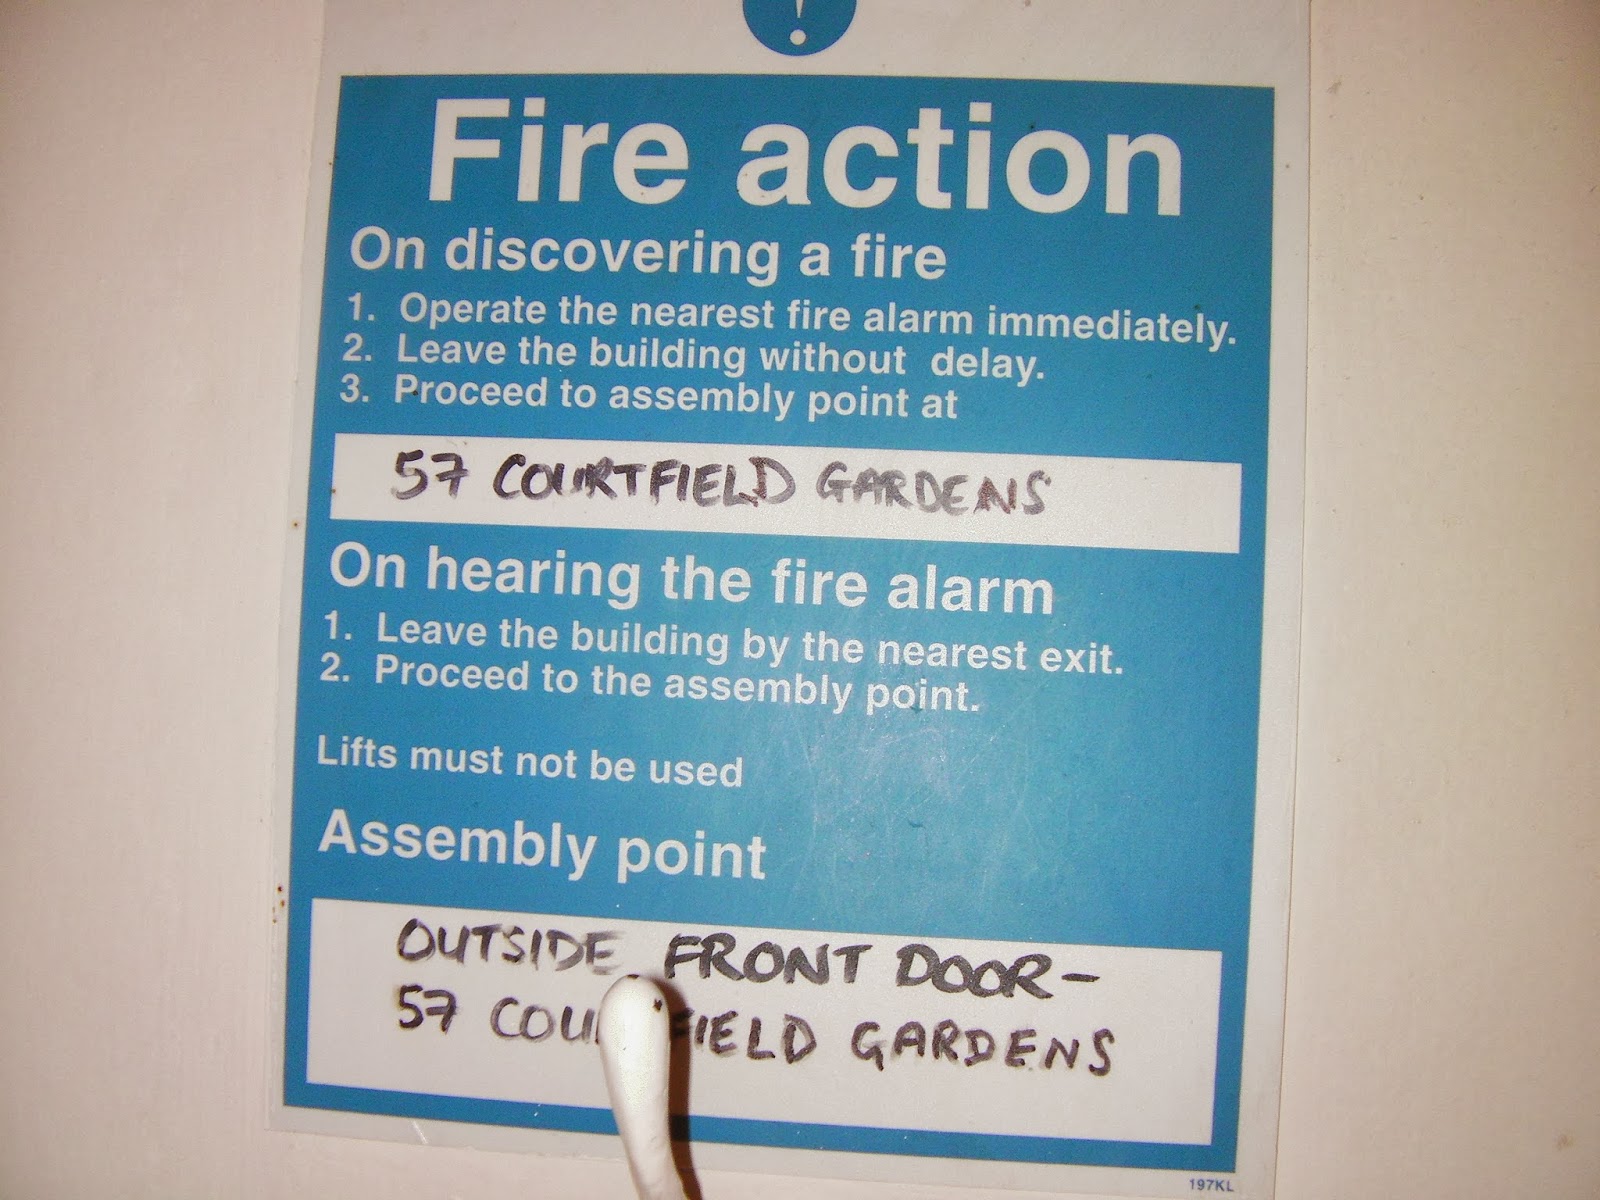 !
Fire action
On discovering a fire
1. Operate the nearest fire alarm immediately.
2. Leave the building without delay.
3. Proceed to assembly point at
57 COURTFIELD GARDENS
On hearing the fire alarm
1. Leave the building by the nearest exit.
2. Proceed to the assembly point.
Lifts must not be used
Assembly point
OUTSIDE FRONT DOOR-
57 COURTFIELD GARDENS
197KL